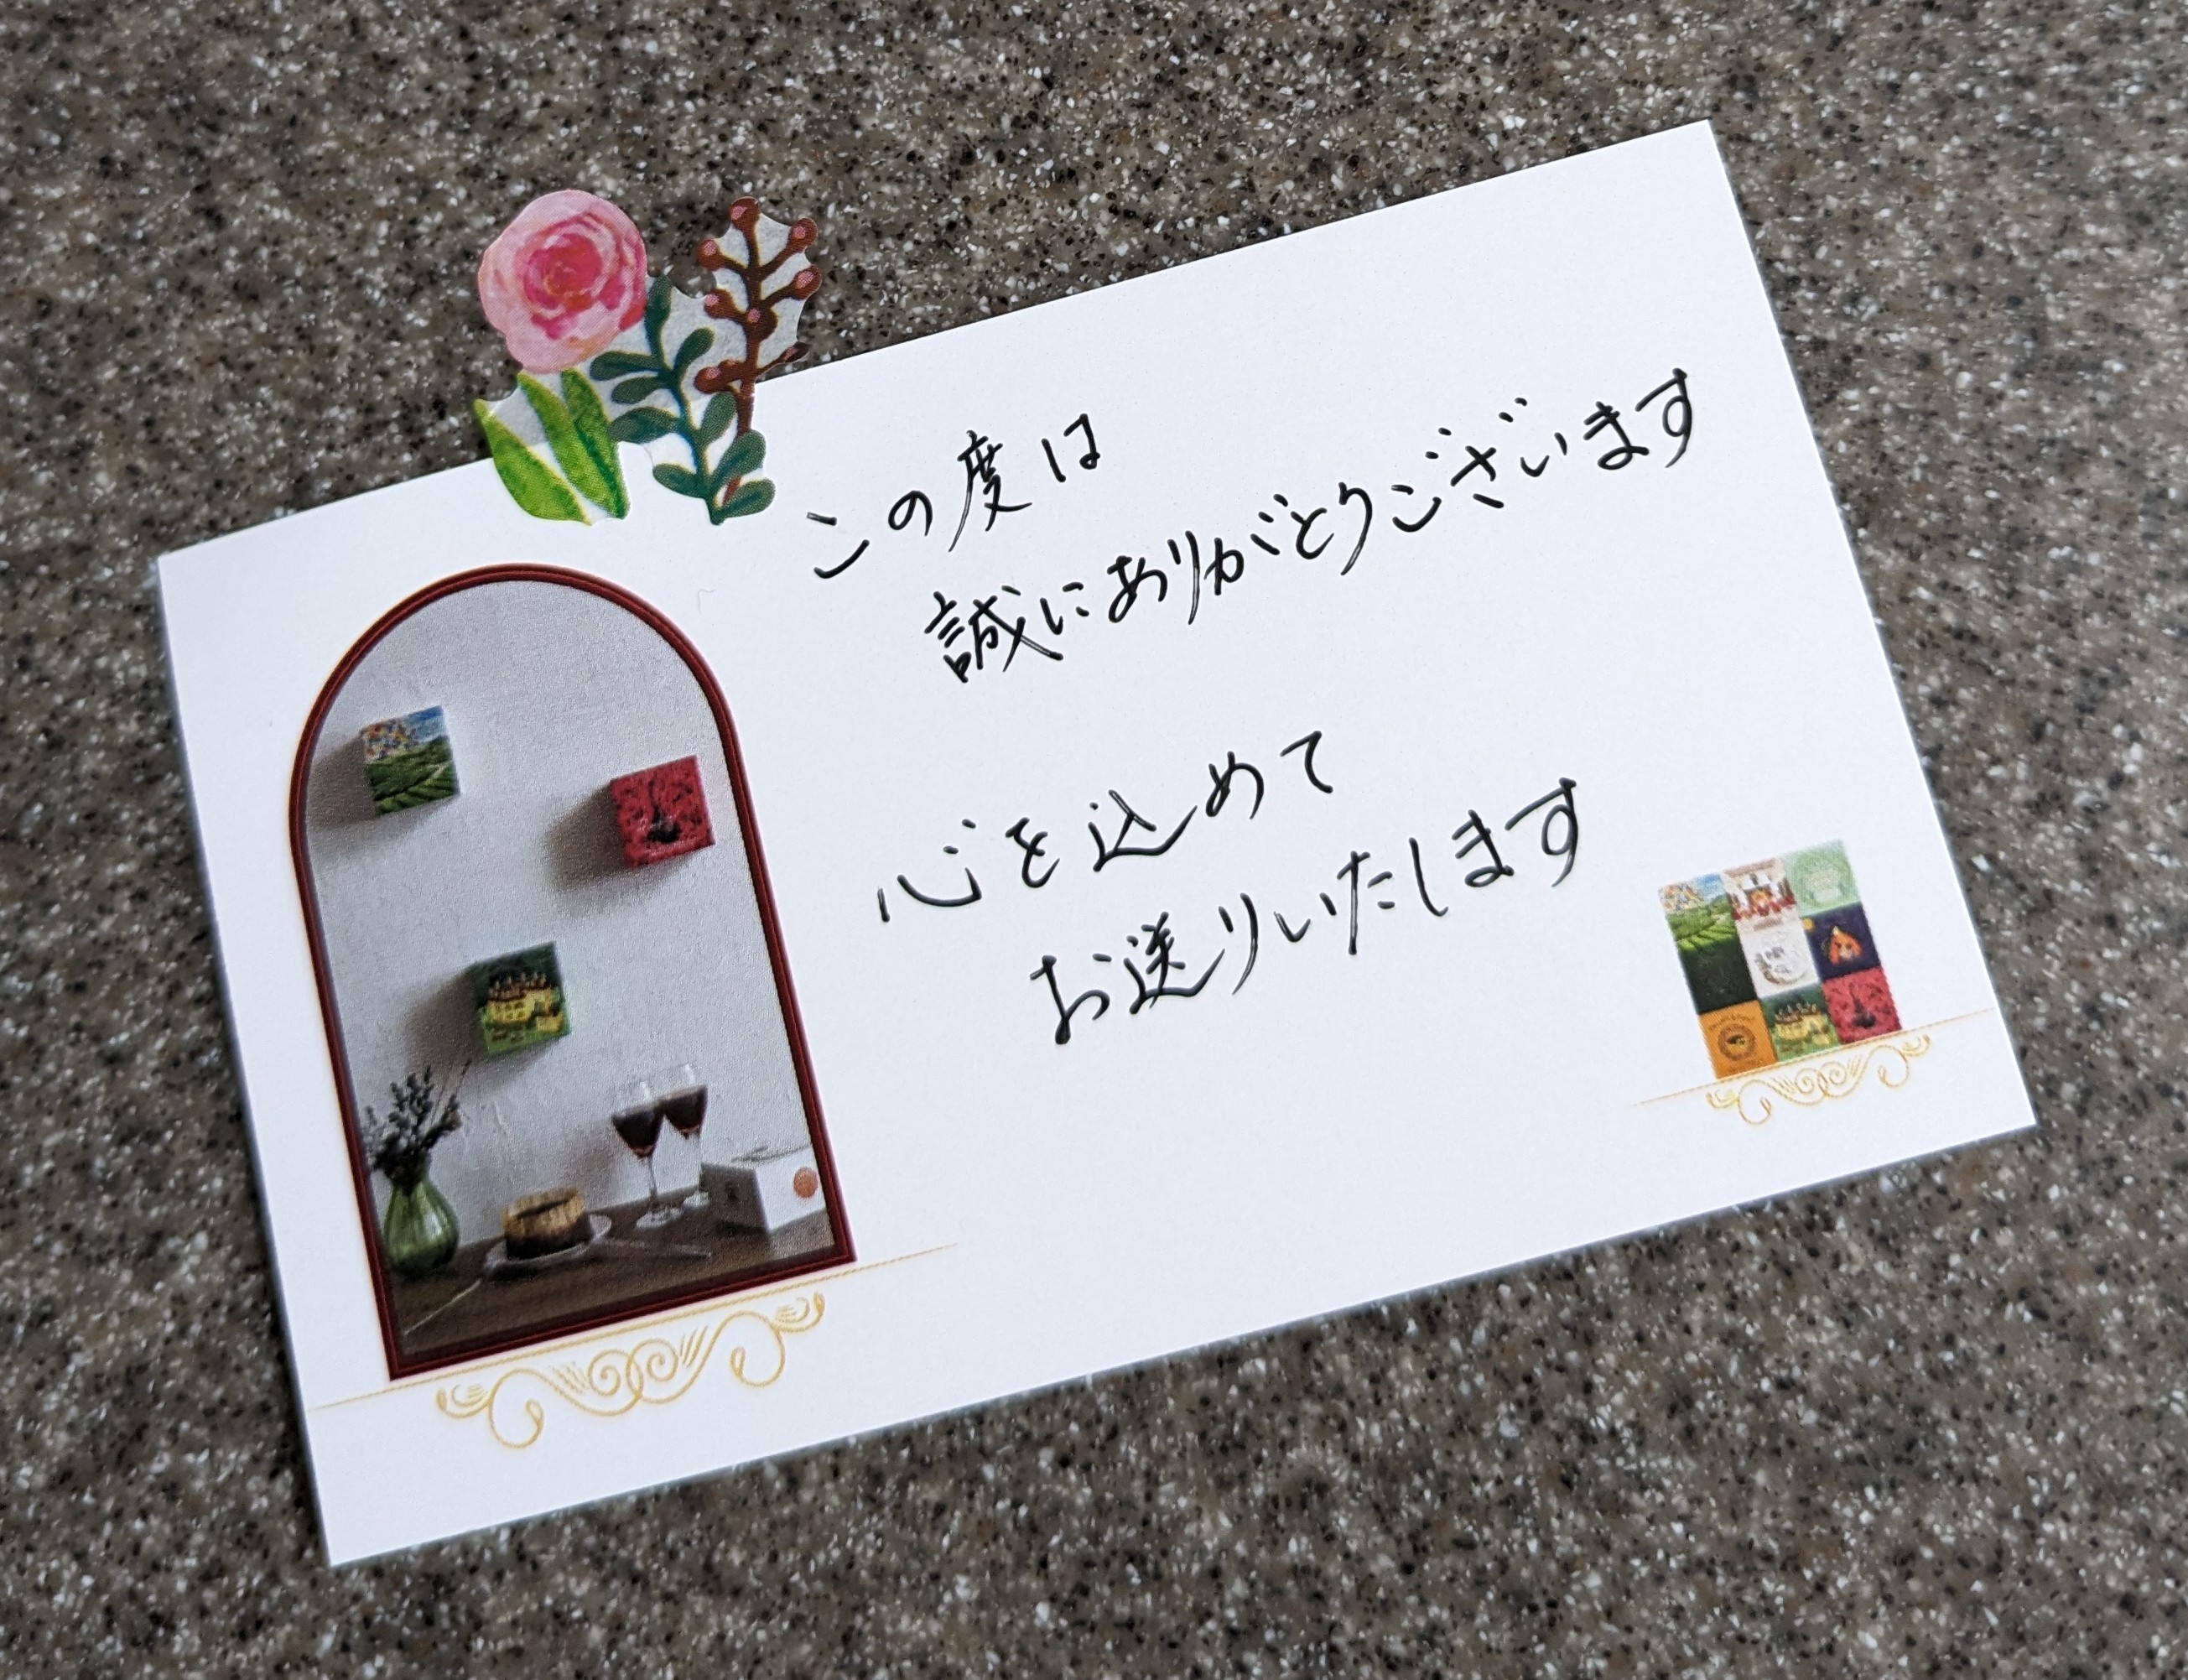 この度は
誠にありがとうございます
心を込めて
お送りいたします